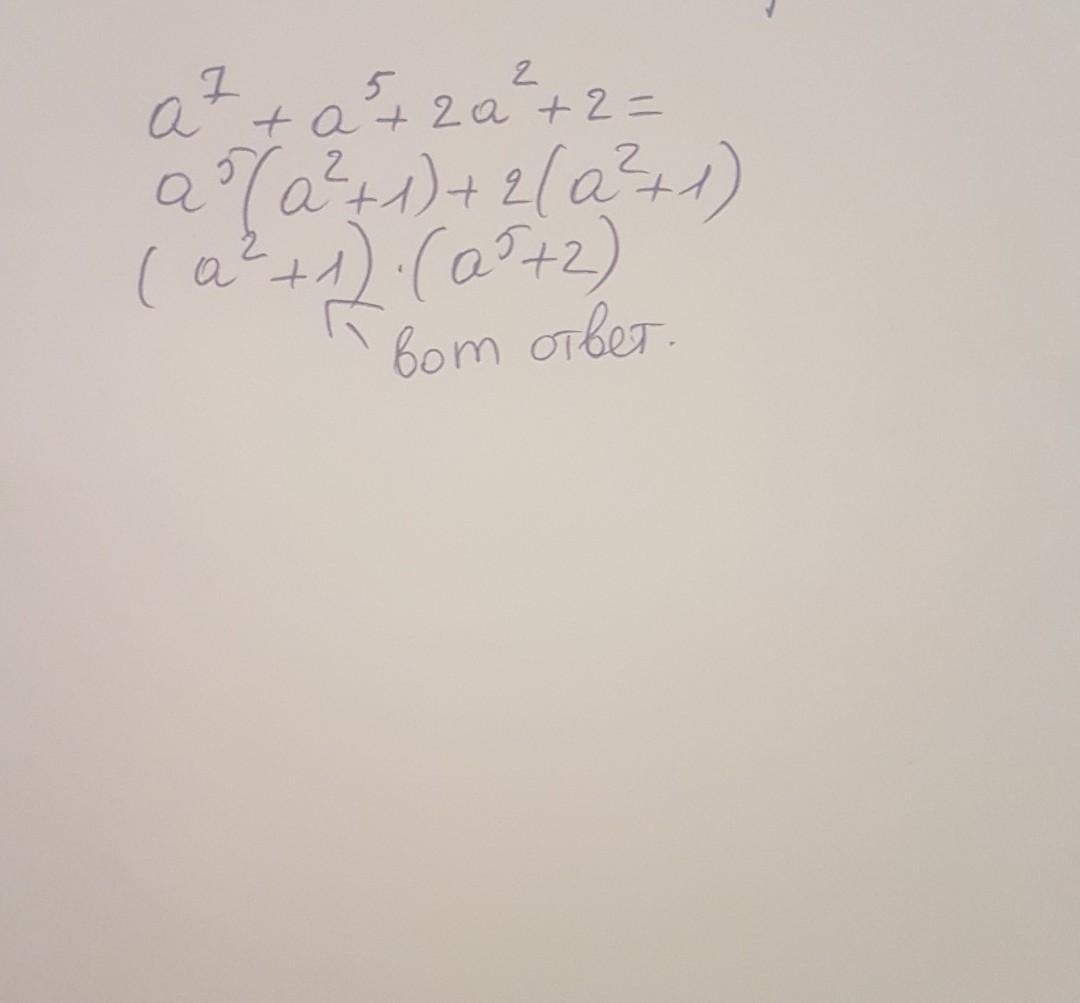 a⁷ + a⁵ + 2a² + 2 =
a⁵(a² + 1) + 2(a² + 1)
(a² + 1) · (a⁵ + 2)
вот ответ.